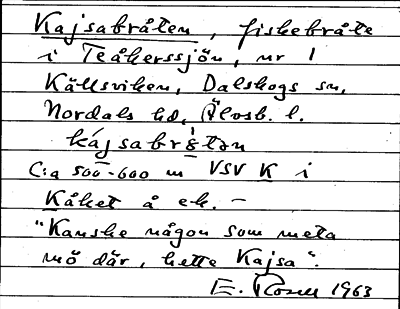 Kajsabråten, fiskebråte
i Teåkerssjön, nr 1
Källsviken, Dalskogs sn,
Nordals hd, Älvsb. l.
kájsabrètən
C:a 500-600 m VSV K i
Kåket å ek. –
"Kanske någon som meta
mö där, hette Kajsa".
E. Rosell 1963